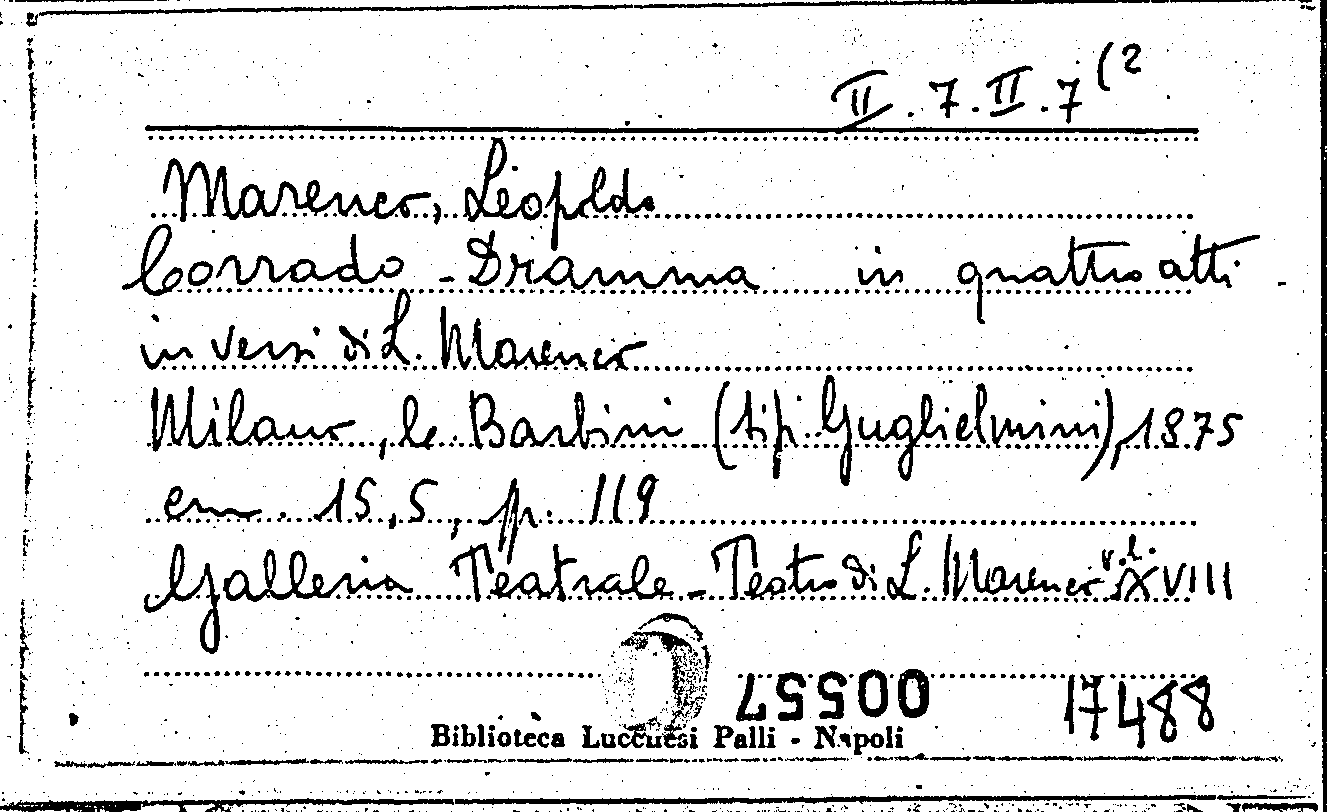 II. 7. II. 7 (2
Marenco, Leopoldo
Corrado - Dramma in quattro atti
in versi di L. Marenco
Milano, C. Barbini (tip. Guglielmini), 1875
cm. 15,5, pp. 119
Galleria Teatrale - Teatro di L. Marenco v. XVIII
00557
17488
Biblioteca Lucchesi Palli - Napoli